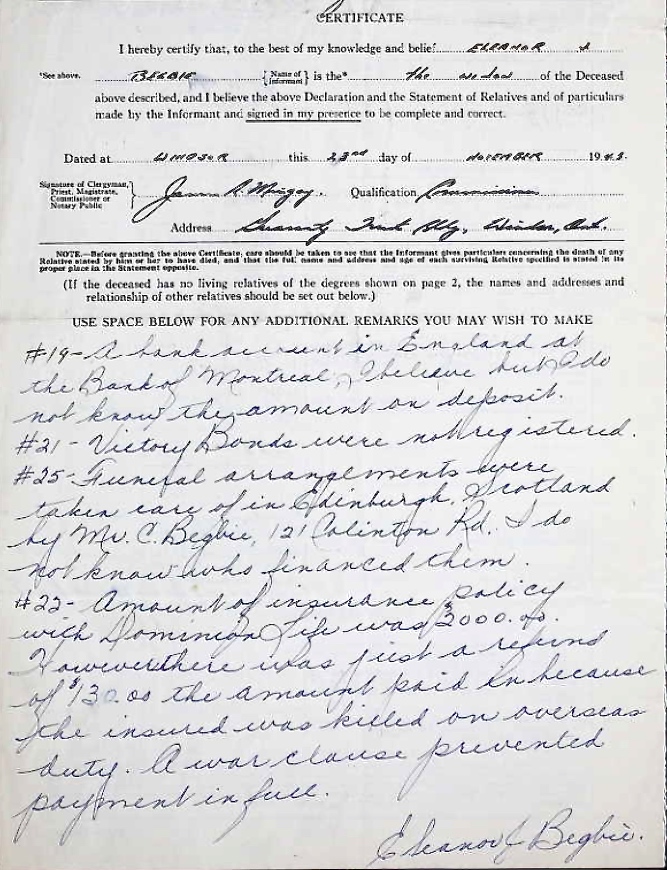 CERTIFICATE
I hereby certify that, to the best of my knowledge and belief ELEANOR J
*See above. BEGBIE {Name of Informant} is the* the widow of the Deceased
above described, and I believe the above Declaration and the Statement of Relatives and of particulars
made by the Informant and signed in my presence to be complete and correct.
Dated at WINDSOR this 23rd day of NOVEMBER 194
Signature of Clergyman, Priest, Magistrate, Commissioner or Notary Public } James Qualification
Address Guaranty Trust Bldg, Windsor, Ont.
NOTE.—Before granting the above Certificate, care should be taken to see that the Informant gives particulars concerning the death of any
Relative stated by him or her to have died, and that the full name and address and age of each surviving Relative specified is stated in its
proper place in the Statement opposite.
(If the deceased has no living relatives of the degrees shown on page 2, the names and addresses and
relationship of other relatives should be set out below.)
USE SPACE BELOW FOR ANY ADDITIONAL REMARKS YOU MAY WISH TO MAKE
#19- A bank account in England at
the Bank of Montreal, I believe but I do
not know the amount on deposit.
#21 - Victory Bonds were not registered.
#25- Funeral arrangements were
taken care of in Edinburgh, Scotland
by Mr. C. Begbie, 121 Colinton Rd. I do
not know who financed them.
#22- Amount of insurance policy
with Dominion Life was $2000.00.
However there was just a refund
of $130.00 the amount paid in because
the insured was killed on overseas
duty. A war clause prevented
payment in full.
Eleanor J Begbie.